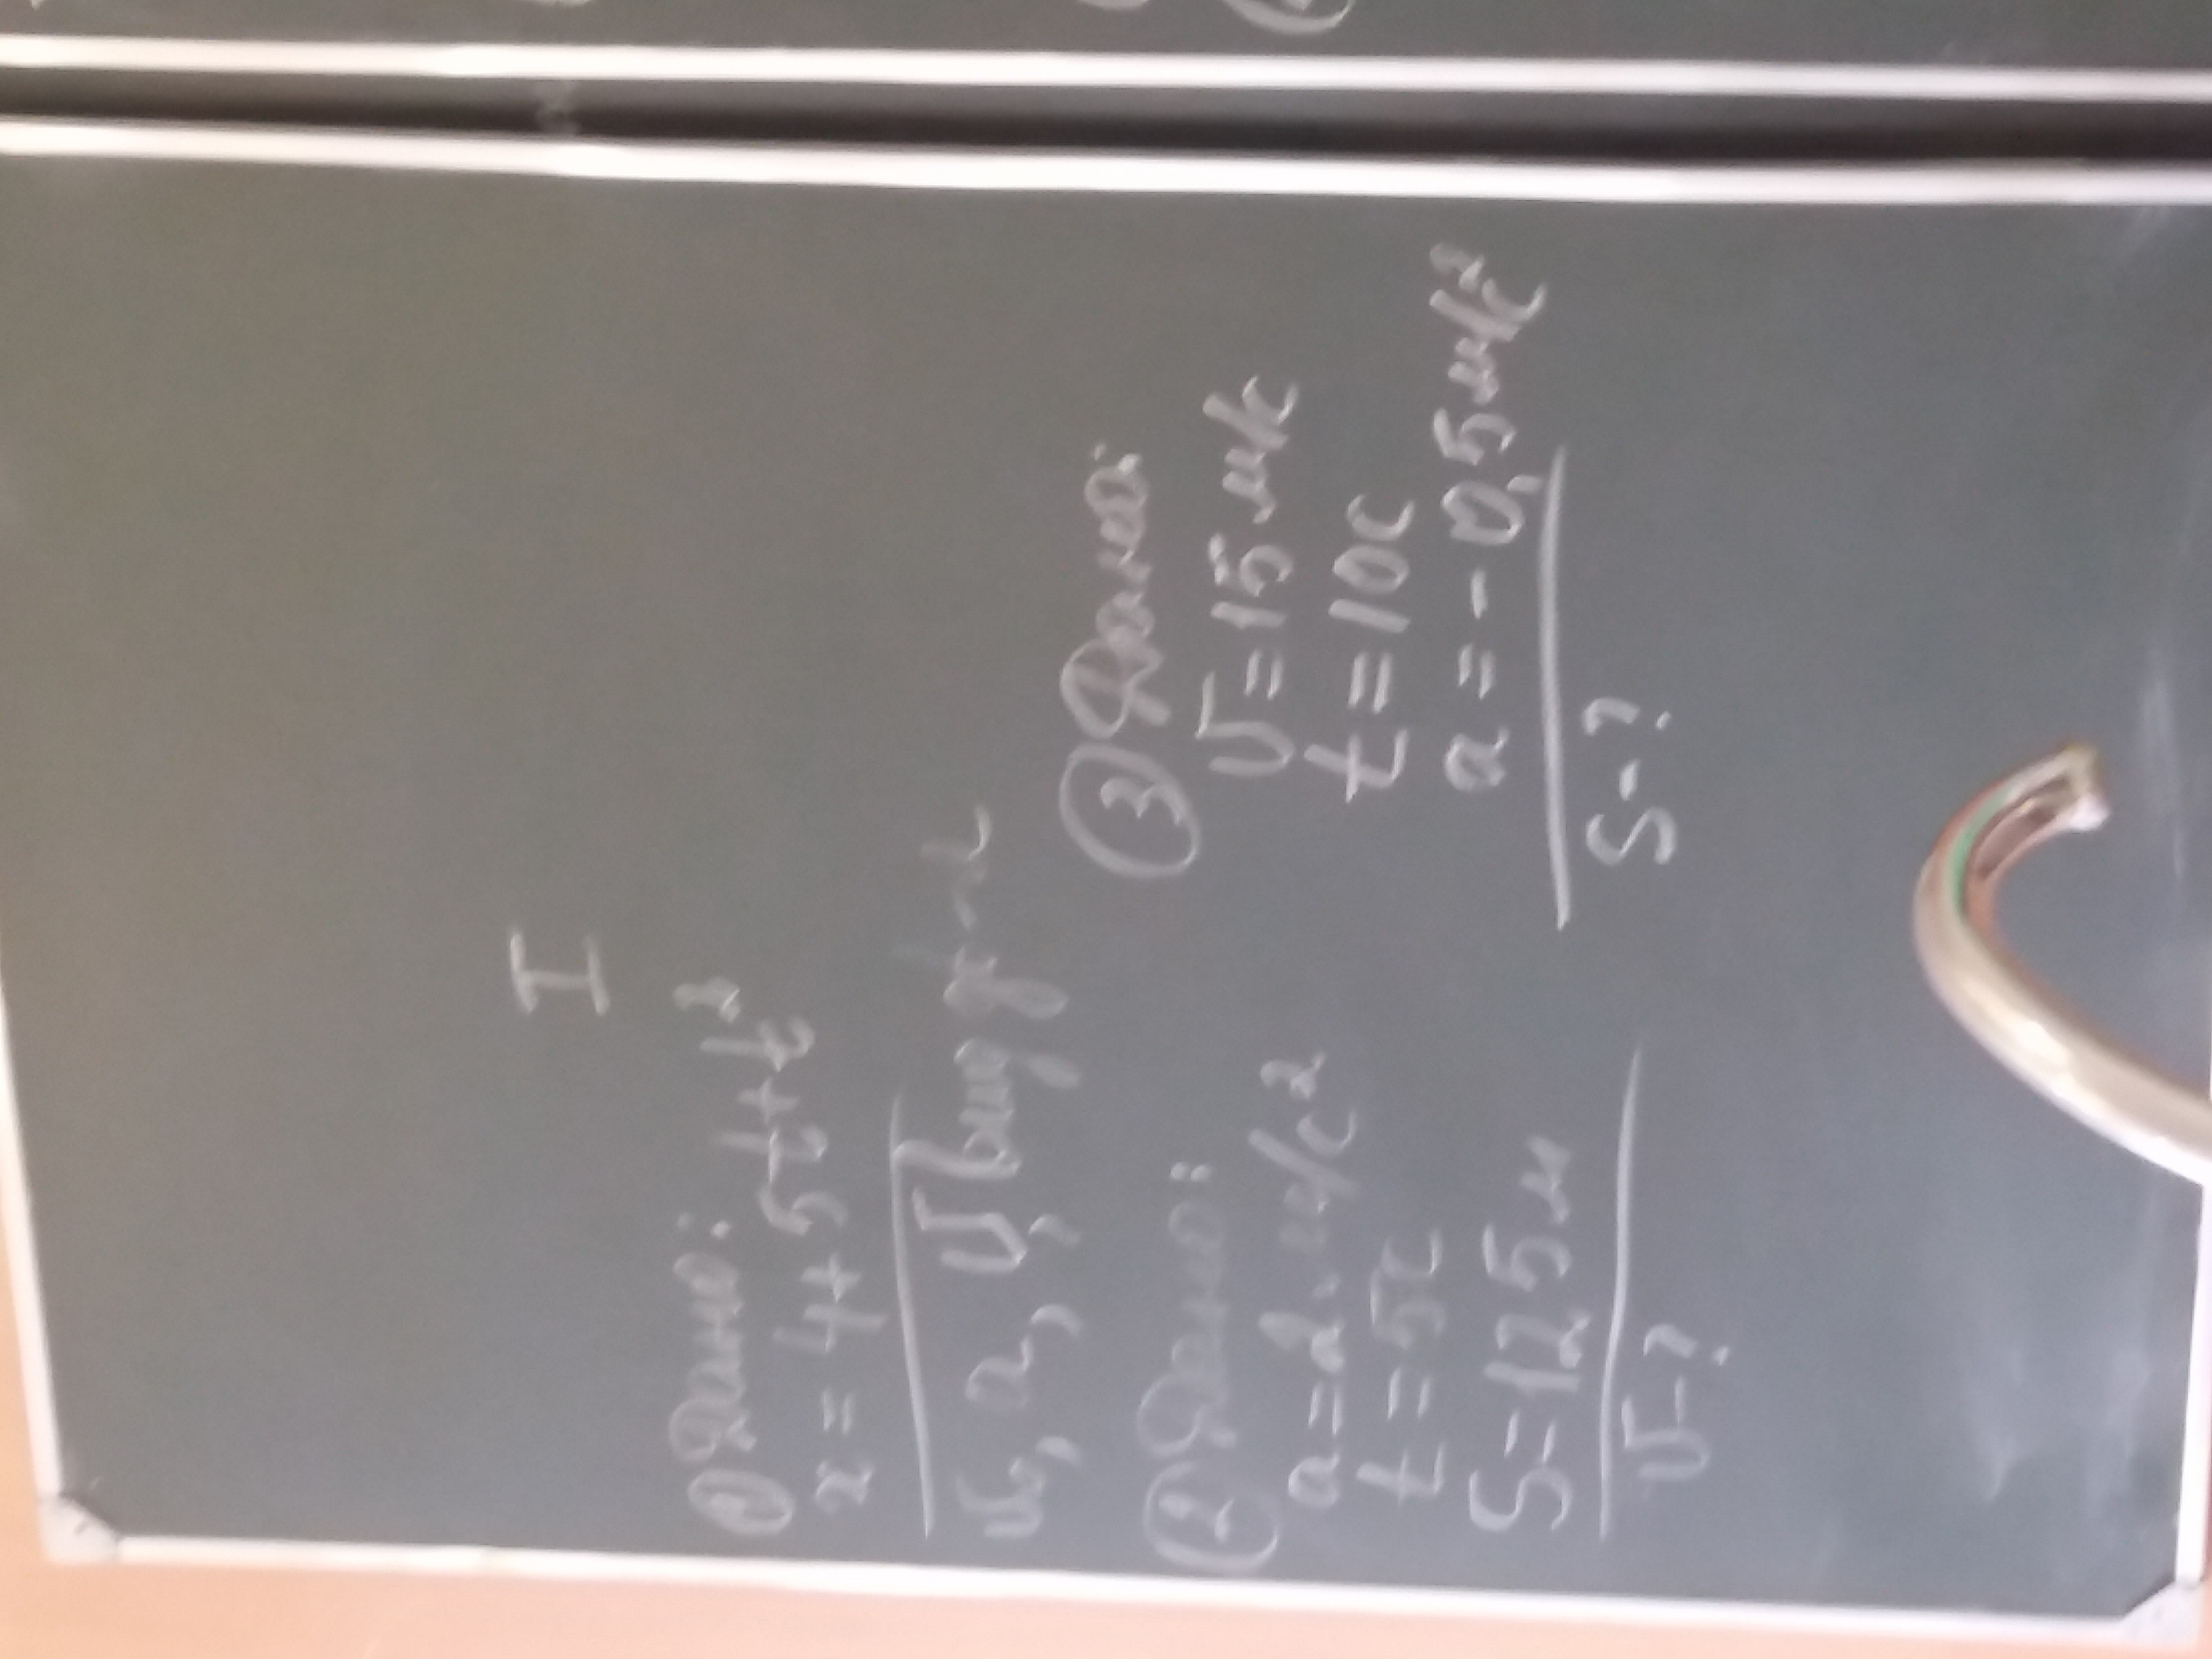 I
① Дано:
x = 4+5t+t²
v₀, a, v, вид дв-я
② Дано:
a=2 м/с²
t=5с
S=125м
v-?
③ Дано:
v=15 м/с
t=10с
a=-0,5 м/с²
S-?